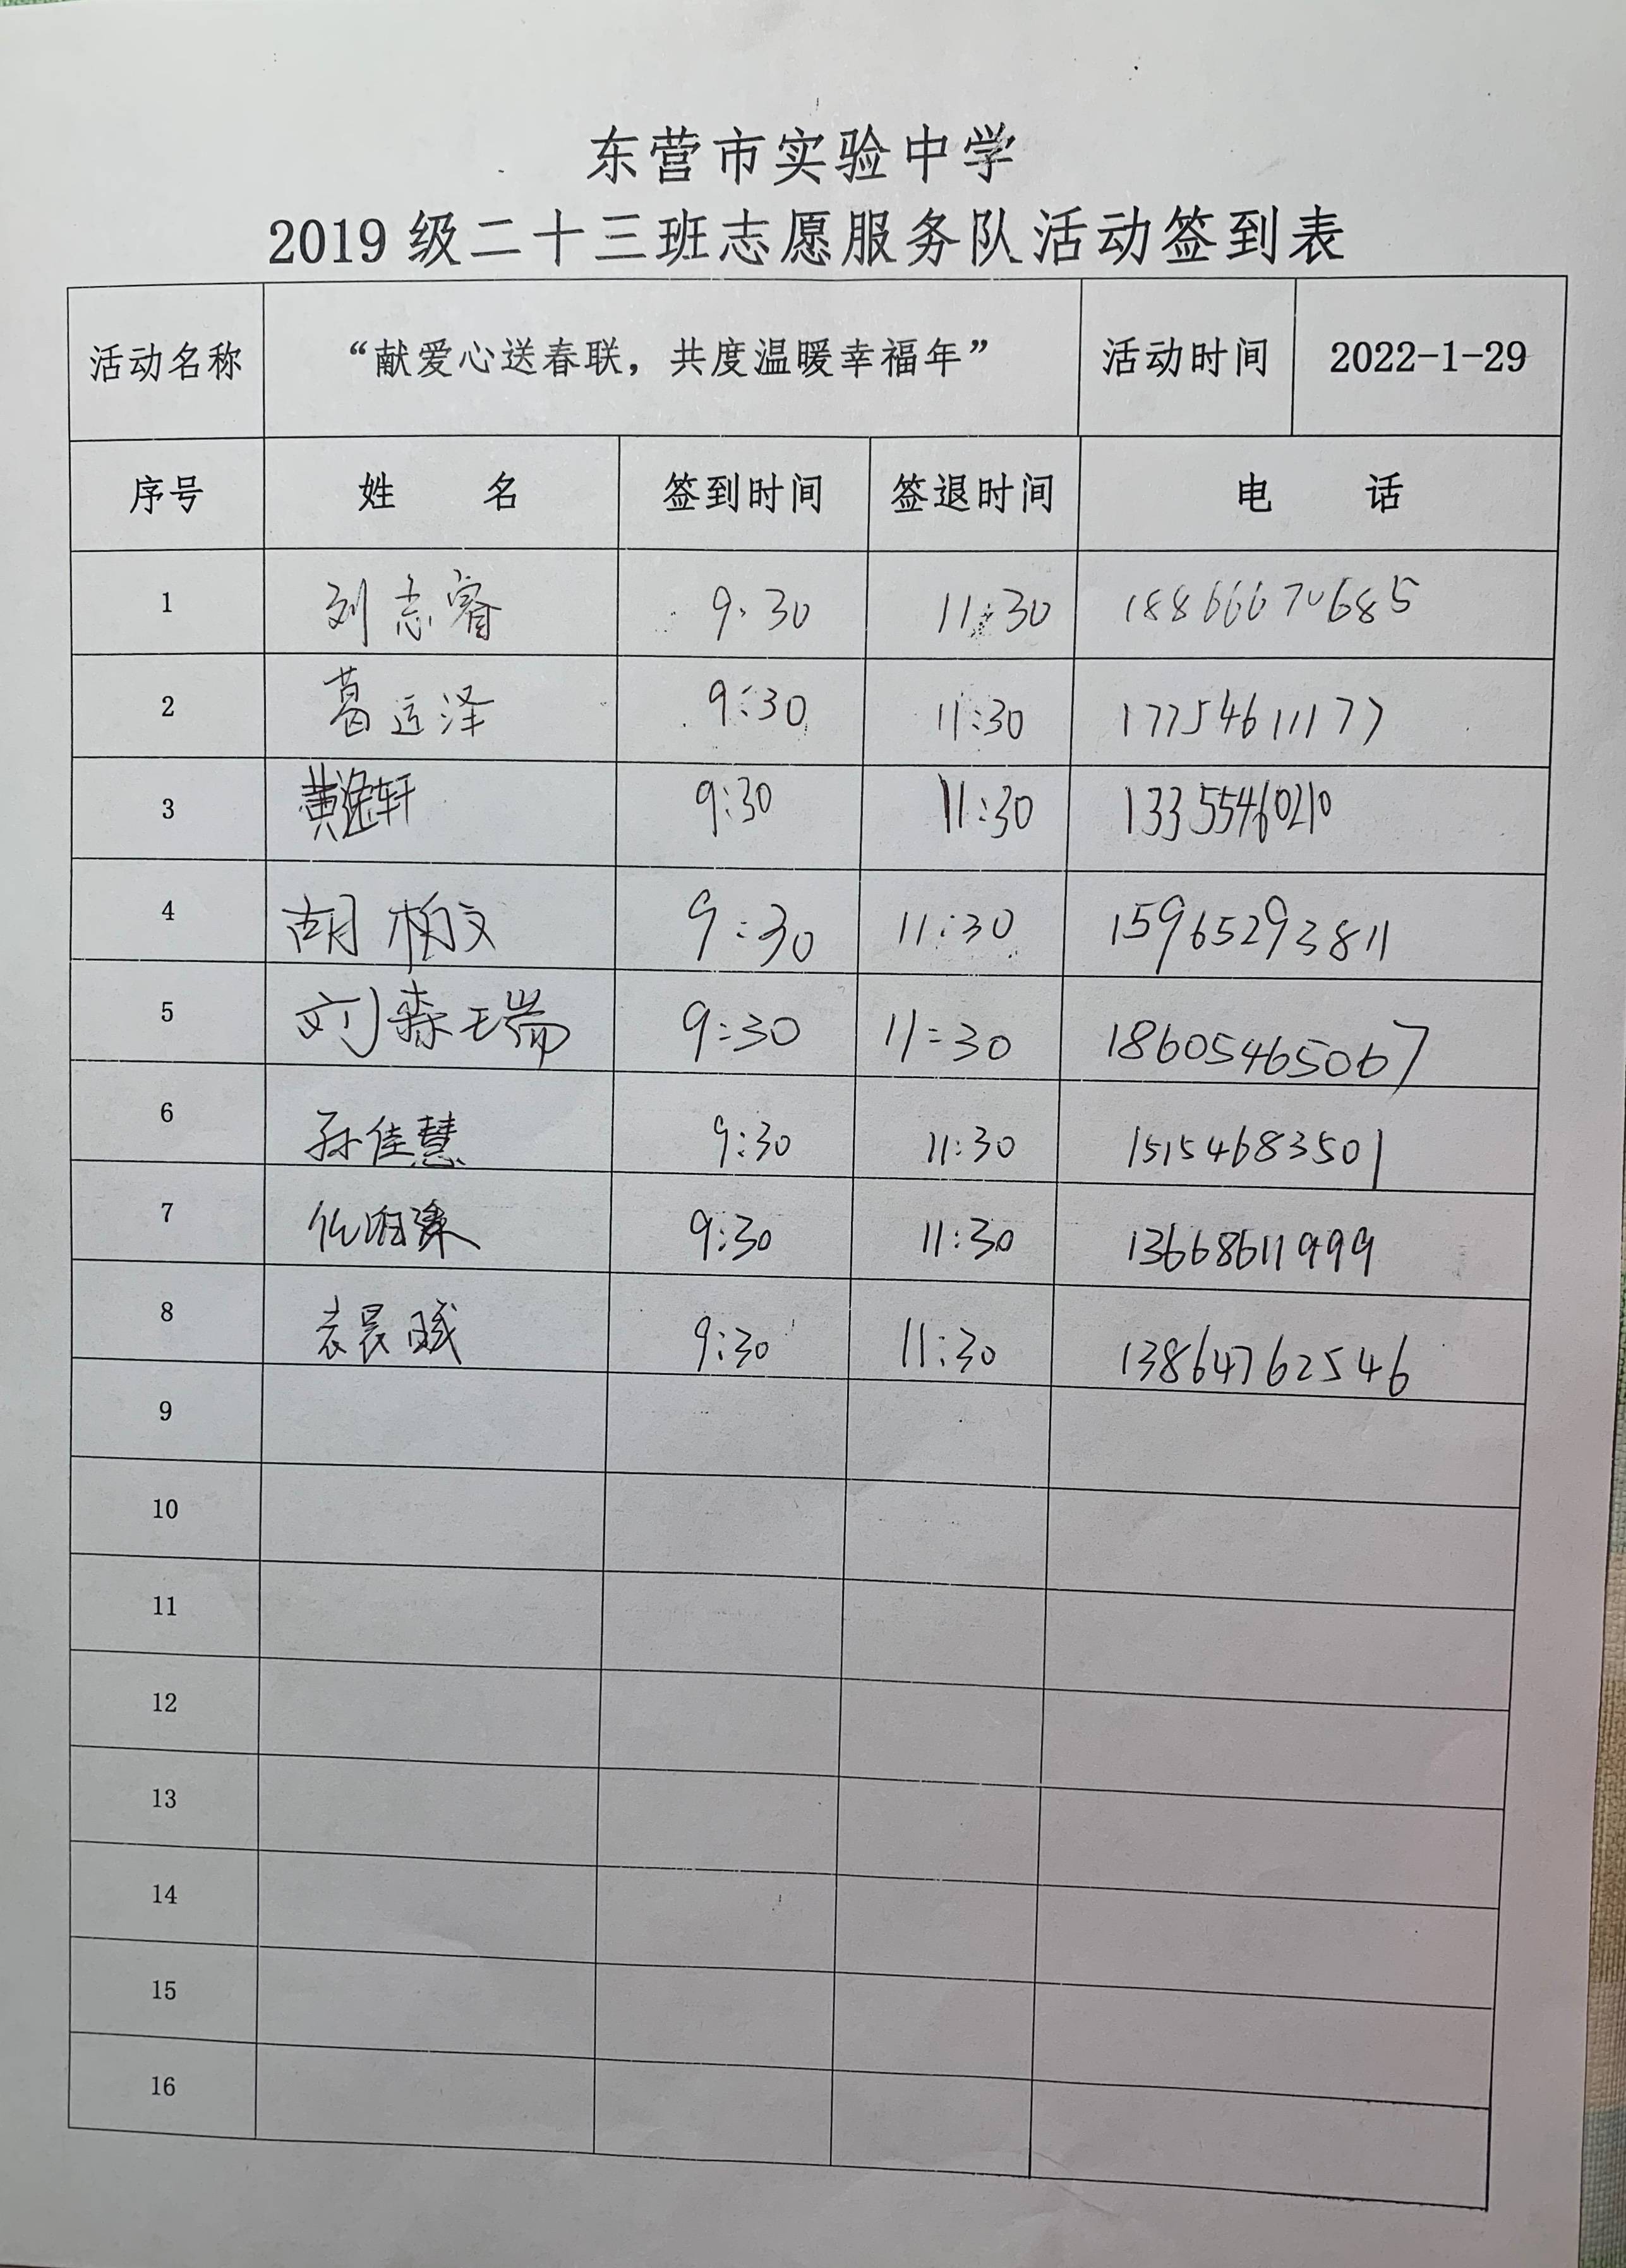 东营市实验中学
2019级二十三班志愿服务队活动签到表
活动名称 “献爱心送春联，共度温暖幸福年” 活动时间 2022-1-29
序号 姓 名 签到时间 签退时间 电 话
1 刘志睿 9:30 11:30 18866670685
2 葛运泽 9:30 11:30 17754611177
3 黄逸轩 9:30 11:30 13355460210
4 胡柏文 9:30 11:30 15965293811
5 刘森瑞 9:30 11:30 18605465067
6 孙佳慧 9:30 11:30 15154683501
7 9:30 11:30 13668611999
8 袁晨曦 9:30 11:30 13864762546
9
10
11
12
13
14
15
16